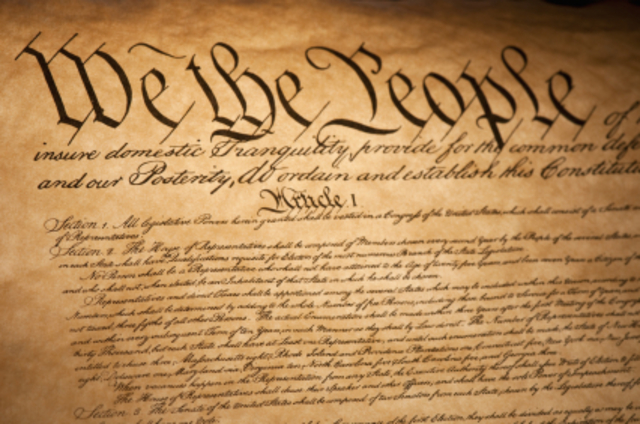 We the People of
insure domestic Tranquility, provide for the common defe
and our Posterity, do ordain and establish this Constitutio
Article I
Section 1. All legislative Powers herein granted shall be vested in a Congress of the United States, which shall consist of a Senate
of Representatives.
Section 2. The House of Representatives shall be composed of Members chosen every second Year by the People of the several States
in each State shall have Qualifications requisite for Electors of the most numerous Branch of the State Legislature.
No Person shall be a Representative who shall not have attained to the Age of twenty five Years, and been seven Years a Citizen of
and who shall not, when elected, be an Inhabitant of that State in which he shall be chosen.
Representatives and direct Taxes shall be apportioned among the several States which may be included within this Union,
Numbers, which shall be determined by adding to the whole Number of free Persons, including those bound to Service for a Term of Years
not taxed, three fifths of all other Persons. The actual Enumeration shall be made within three Years after the first Meeting of the Congress
and within every subsequent Term of ten Years, in such Manner as they shall by Law direct. The Number of Representatives shall
thirty Thousand, but each State shall have at Least one Representative; and until such enumeration shall be made, the State of
entitled to chuse three, Massachusetts eight, Rhode Island and Providence Plantations one, Connecticut five, New York six, New
eight, Delaware one, Maryland six, Virginia ten, North Carolina five, South Carolina five, and Georgia three.
When vacancies happen in the Representation from any State, the Executive Authority thereof shall issue Writs of Election to
The House of Representatives shall chuse their Speaker and other Officers; and shall have the sole Power of Impeachment.
Section 3. The Senate of the United States shall be composed of two Senators from each State, chosen by the Legislature thereof
of the first Election, they shall be divided as equally as may be